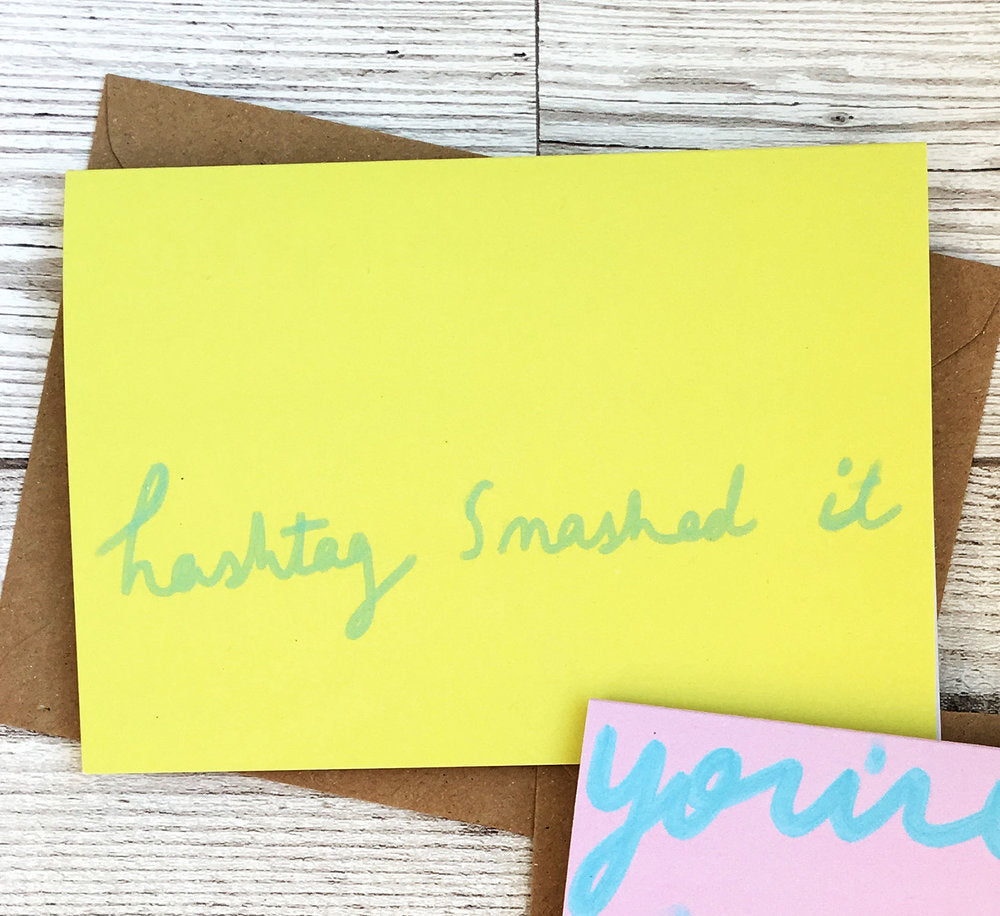 hashtag Smashed it
you're